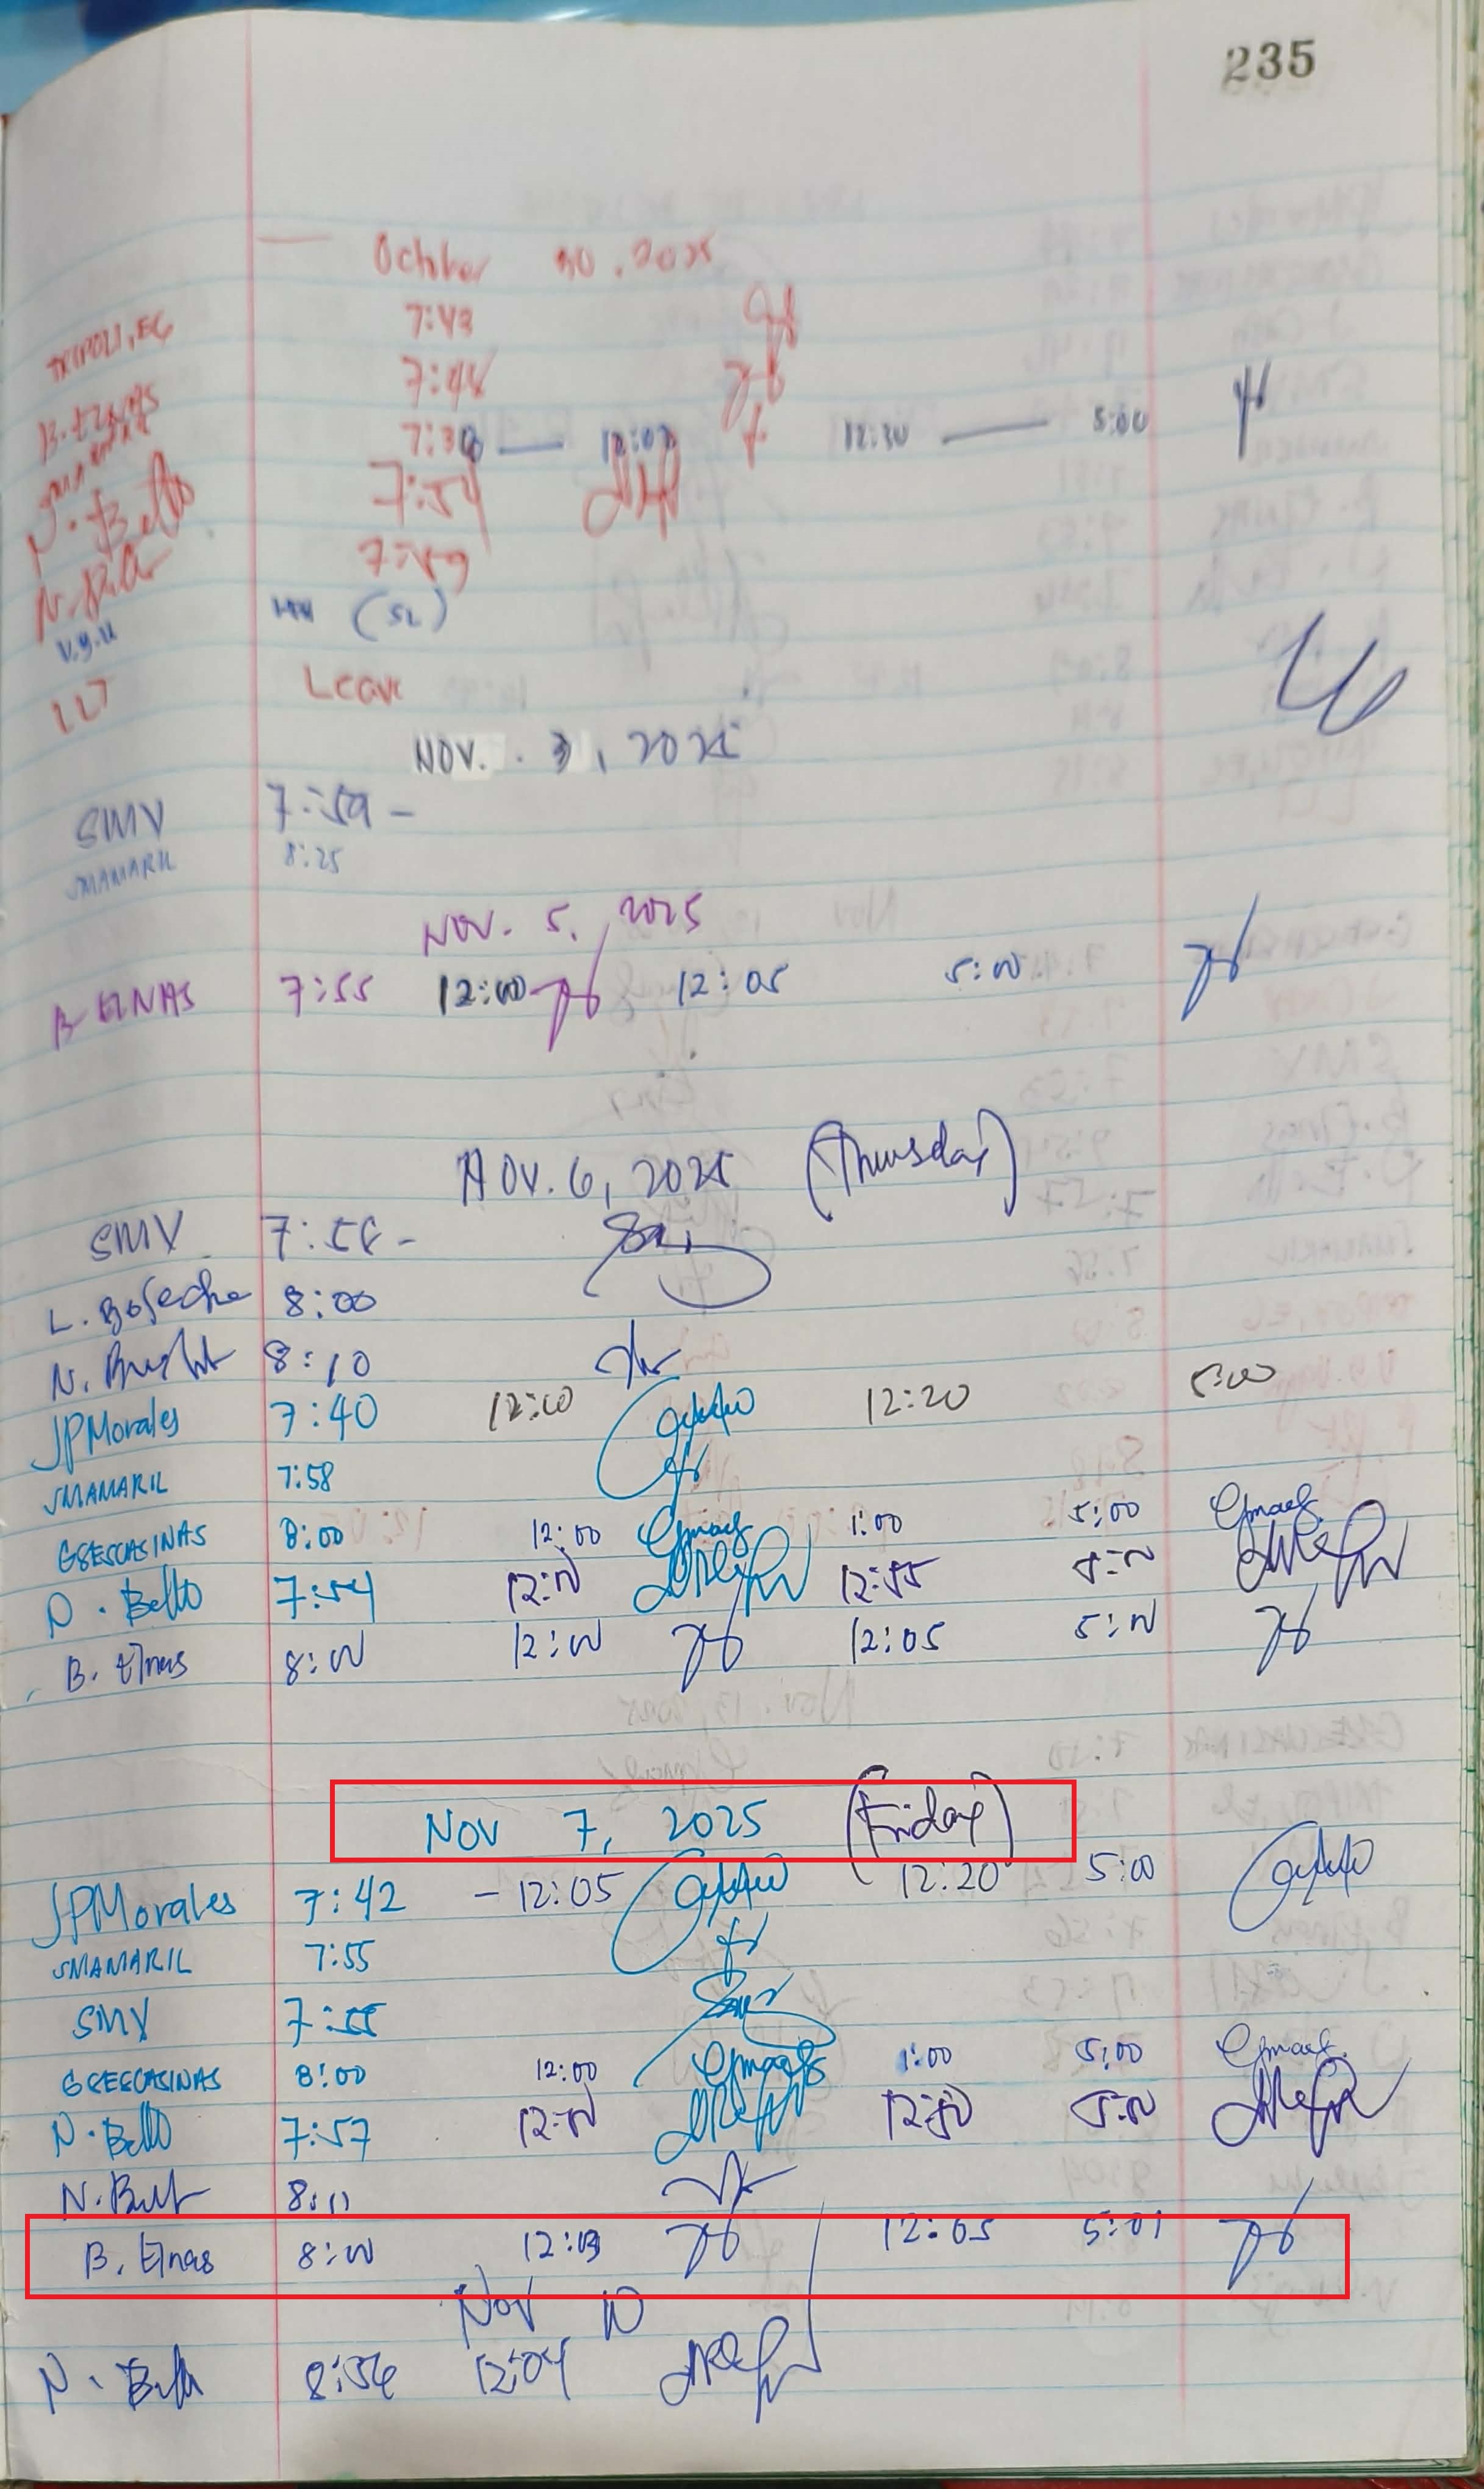 235
October 30, 2025
TRIPOLI, EG 7:43
B. Elnas 7:48
7:30 — 12:02 12:30 — 5:00
N. Bello 7:54
7:59
V.g.u (SL)
LLT Leave
NOV. 3, 2025
SMV 7:59 -
JMAMARIL 8:25
NOV. 5, 2025
B ELNAS 7:55 12:00 12:05 5:00
NOV. 6, 2025 (Thursday)
SMV 7:58 -
L. 8:00
N. 8:10
JPMorales 7:40 12:00 12:20 5:00
JMAMARIL 7:58
GSESCASINAS 8:00 12:00 1:00 5:00
N. Bello 7:54 12:00 12:55 5:00
B. Elnas 8:00 12:00 12:05 5:00
Nov 7, 2025 (Friday)
JPMorales 7:42 - 12:05 12:20 5:00
JMAMARIL 7:55
SMV 7:55
GSESCASINAS 8:00 12:00 1:00 5:00
N. Bello 7:57 12:00 12:50 5:00
N. 8:11
B. Elnas 8:00 12:03 12:05 5:01
Nov 10
N. Bello 8:56 12:04